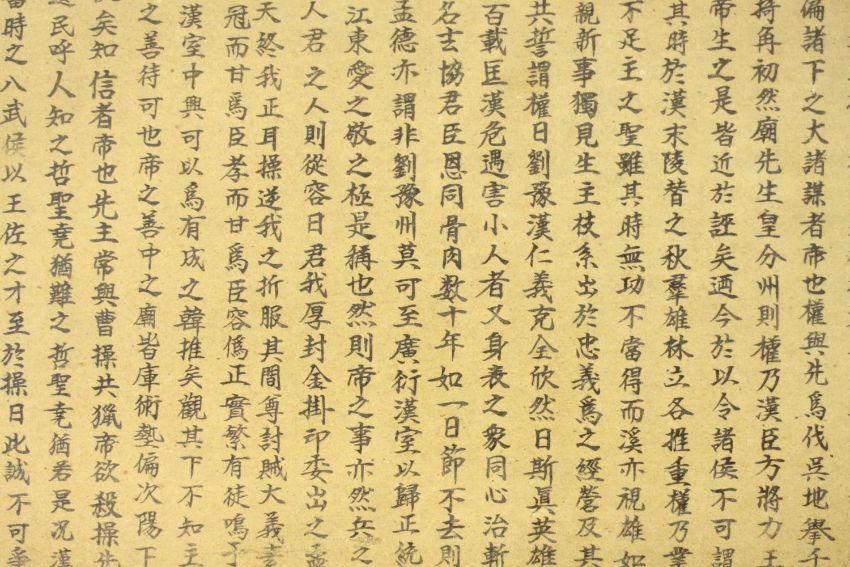 偏諸下之大諸謀者帝也權與先爲伐吳地擧千
掎再初然廟先生皇分州則權乃漢臣方將力王
帝生之是皆近於誣矣迺今於以令諸侯不可謂
其時於漢末陵替之秋羣雄林立各推重權乃業
不足主之聖雖其時無功不當得而溪亦視雄如
親新事獨見生主枝系出於忠義爲之經營及其
共誓謂權曰劉豫漢仁義充全欣然日斯眞英雄
百載匡漢危遇害小人者又身喪之衆同心治斬
名去協君臣恩同骨肉数十年如一日節不去則
孟德亦謂非劉豫州莫可至廣衍漢室以歸正統
江東愛之敬之極是稱也然則帝之事亦然兵之
人君之人則從容日君我厚封金掛印委出之孟
天終我正耳操逆我之折服其間尊討賊大義
冠而甘爲臣孝而甘爲臣容僞正實繁有徒鳴予
漢室中興可以爲有成之韓推矣觀其下不知主
之善待可也帝之善中之廟皆庫術藝偏次陽下
矣知信者帝也先主常與曹操共獵帝欲殺操
民呼人知之哲聖堯猶難之哲聖堯猶若是况漢
時之八武侯以王佐之才至於操日此誠不可爭